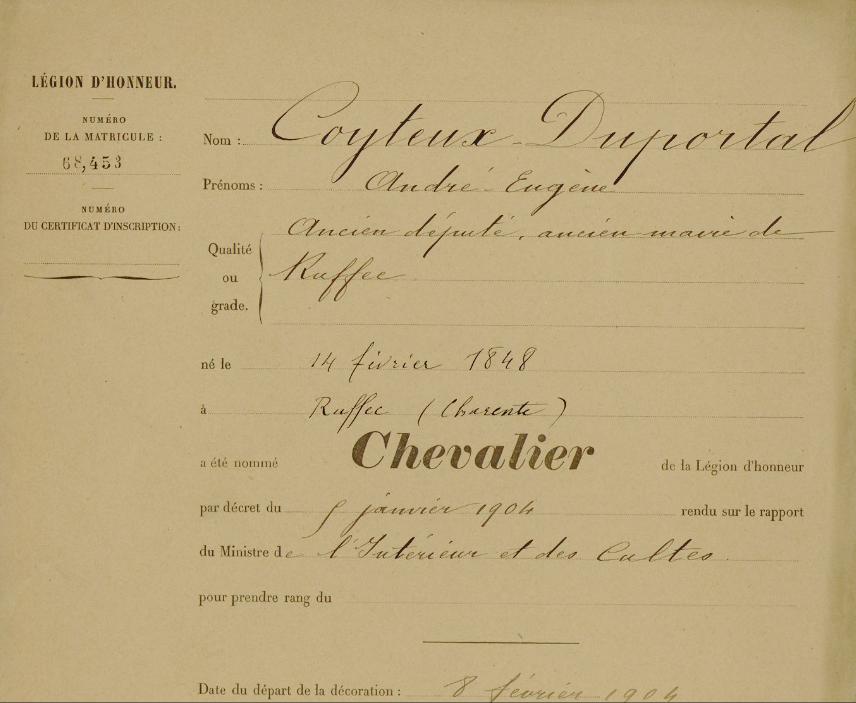 LÉGION D'HONNEUR.
NUMÉRO
DE LA MATRICULE :
68,453
NUMÉRO
DU CERTIFICAT D'INSCRIPTION :
Nom : Coyteux-Duportal
Prénoms : André-Eugène
Qualité ou grade. Ancien député, ancien maire de
Ruffec
né le 14 février 1848
à Ruffec (Charente)
a été nommé Chevalier de la Légion d'honneur
par décret du 5 janvier 1904 rendu sur le rapport
du Ministre de l'Intérieur et des Cultes
pour prendre rang du
Date du départ de la décoration : 8 février 1904